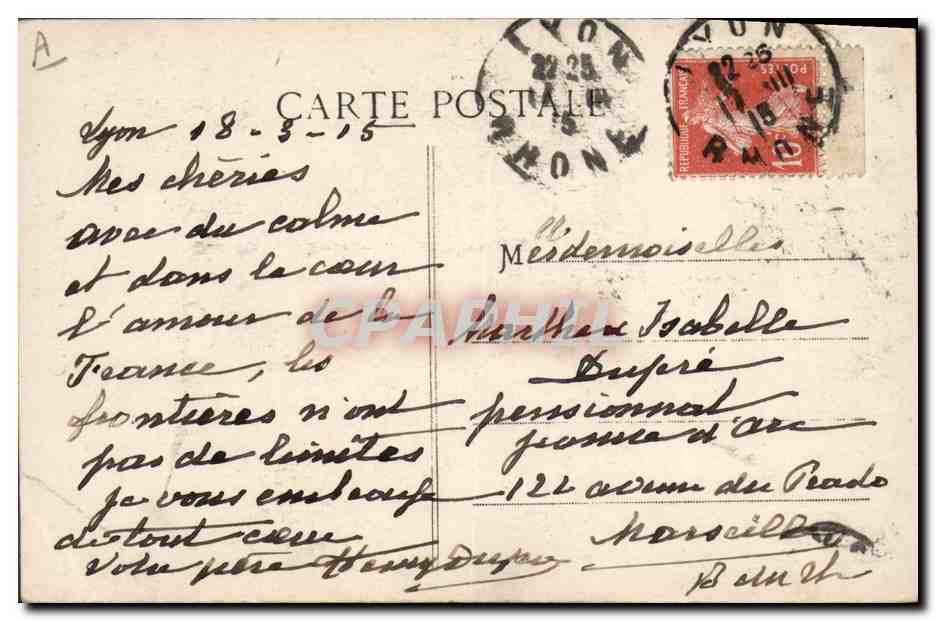 A
CARTE POSTALE
LYON
22 25
15
RHONE
LYON
22 25
15
RHONE
REPUBLIQUE FRANÇAISE
POSTES
10
Lyon 18-3-15
Mes chèries
avec du calme
et dans le cœur
l'amour de la
France, les
frontières n'ont
pas de limites
je vous
de tout cœur
Votre père Henry Dupré
Mesdemoiselles
Marthe & Isabelle
Dupré
pensionnat
Jeanne d'Arc
122 avenue du Prado
Marseille
B du Rh
CPAPHIL